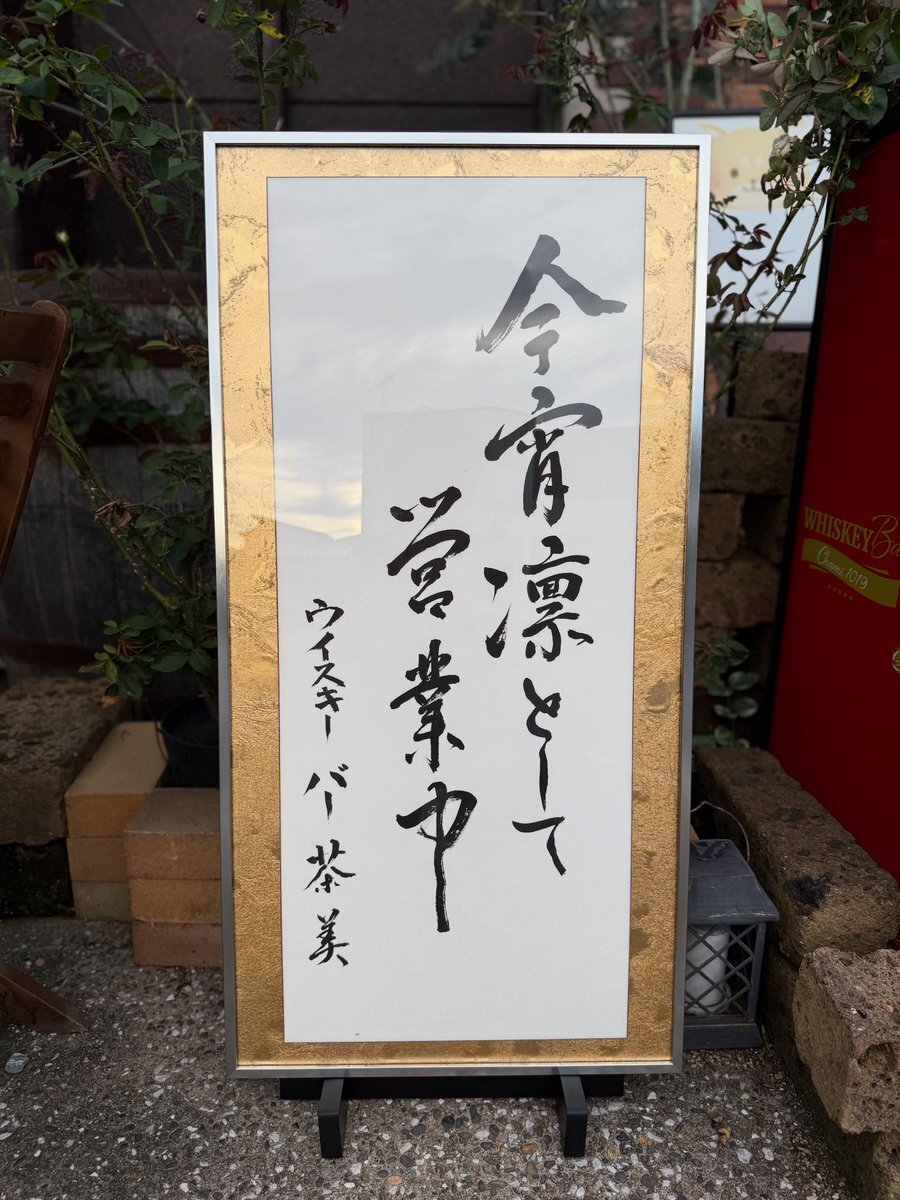 今宵凛として
営業中
ウイスキー バー 茶美
WHISKEY Ba
Chami 1019